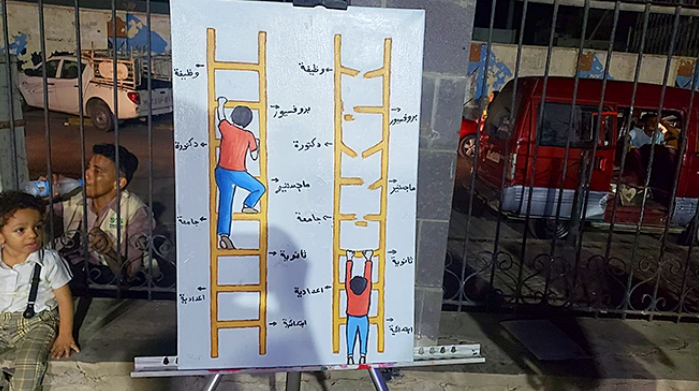 وظيفة
بروفسيور
دكتورة
ماجستير
جامعة
ثانوية
اعدادية
ابتدائية
وظيفة
بروفسيور
دكتورة
ماجستير
جامعة
ثانوية
اعدادية
ابتدائية